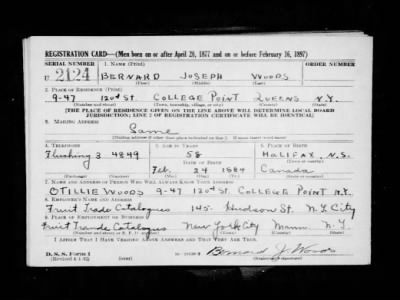 REGISTRATION CARD—(Men born on or after April 28, 1877 and on or before February 16, 1897)
SERIAL NUMBER 1. NAME (Print) ORDER NUMBER
U 2124 BERNARD JOSEPH WOODS
(First) (Middle) (Last)
2. PLACE OF RESIDENCE (Print)
9-47 120d ST. COLLEGE POINT QUEENS N.Y.
(Number and street) (Town, township, village, or city) (County) (State)
[THE PLACE OF RESIDENCE GIVEN ON THE LINE ABOVE WILL DETERMINE LOCAL BOARD
JURISDICTION; LINE 2 OF REGISTRATION CERTIFICATE WILL BE IDENTICAL]
3. MAILING ADDRESS
Same
[Mailing address if other than place indicated on line 2. If same insert word same]
4. TELEPHONE 5. AGE IN YEARS 6. PLACE OF BIRTH
Flushing 3 4849 58 HALIFAX, N.S.
DATE OF BIRTH (Town or county)
Feb. 24 1884 Canada
(Exchange) (Number) (Mo.) (Day) (Yr.) (State or country)
7. NAME AND ADDRESS OF PERSON WHO WILL ALWAYS KNOW YOUR ADDRESS
OTILLIE WOODS 9-47 120d ST. COLLEGE POINT N.Y.
8. EMPLOYER'S NAME AND ADDRESS
Fruit Trade Catalogues 145 Hudson St. N.Y. City
9. PLACE OF EMPLOYMENT OR BUSINESS
Fruit Trade Catalogues New York City Mann. N.Y.
(Number and street or R. F. D. number) (Town) (County) (State)
I AFFIRM THAT I HAVE VERIFIED ABOVE ANSWERS AND THAT THEY ARE TRUE.
D. S. S. Form 1
Bernard J. Woods